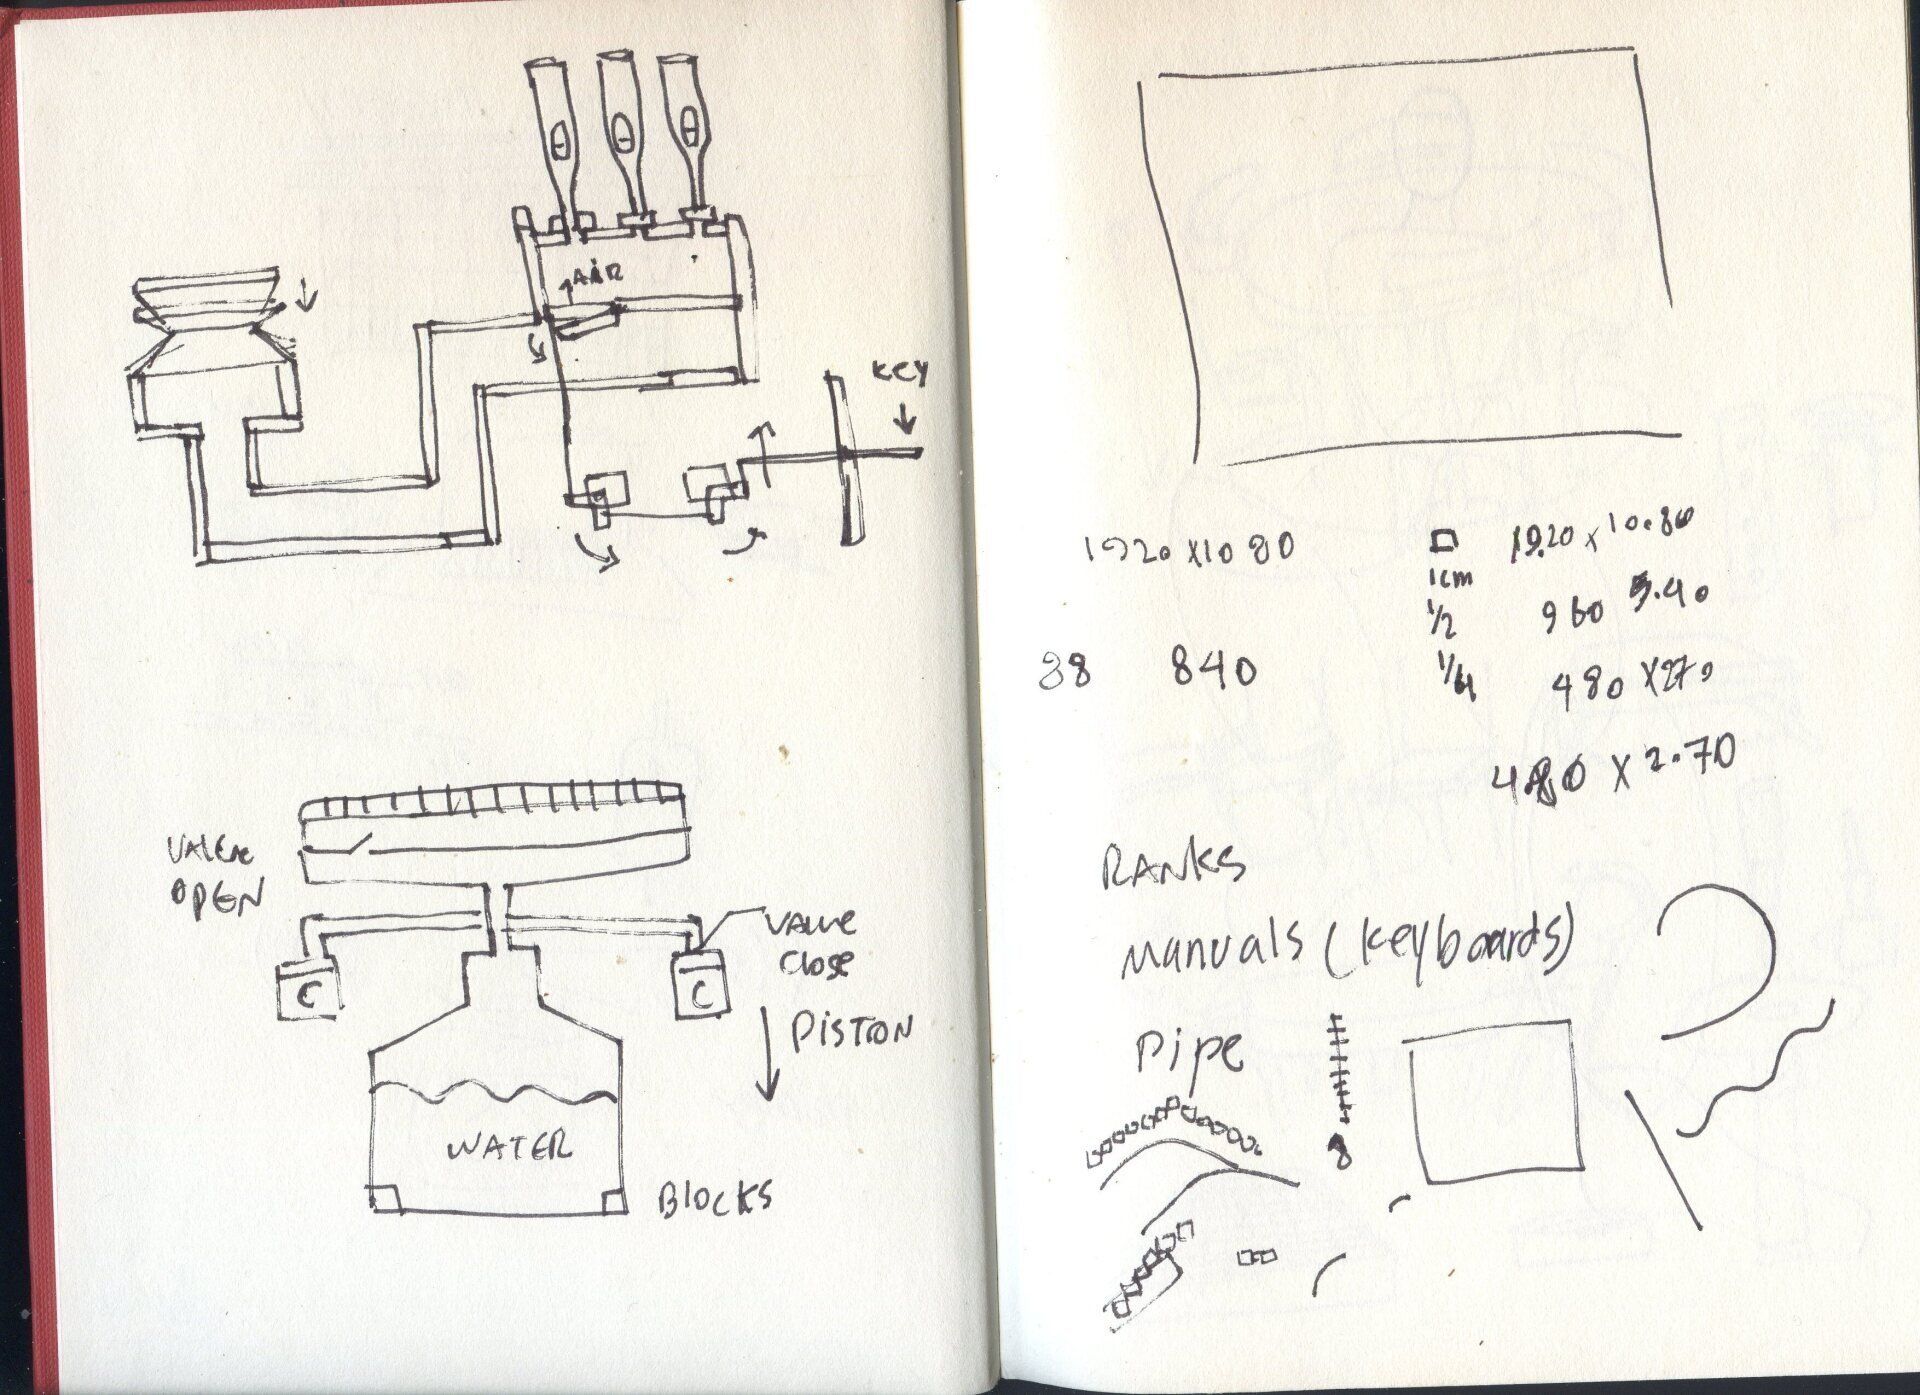 AIR
KEY
VALVE
OPEN
C
C
VALVE
Close
PISTON
WATER
BLOCKS
1920 x 1080
1cm
19.20 x 10.80
1/2
960 5.40
38 840
1/4
480 x 270
4.80 x 2.70
RANKS
Manuals (keyboards)
Pipe
8